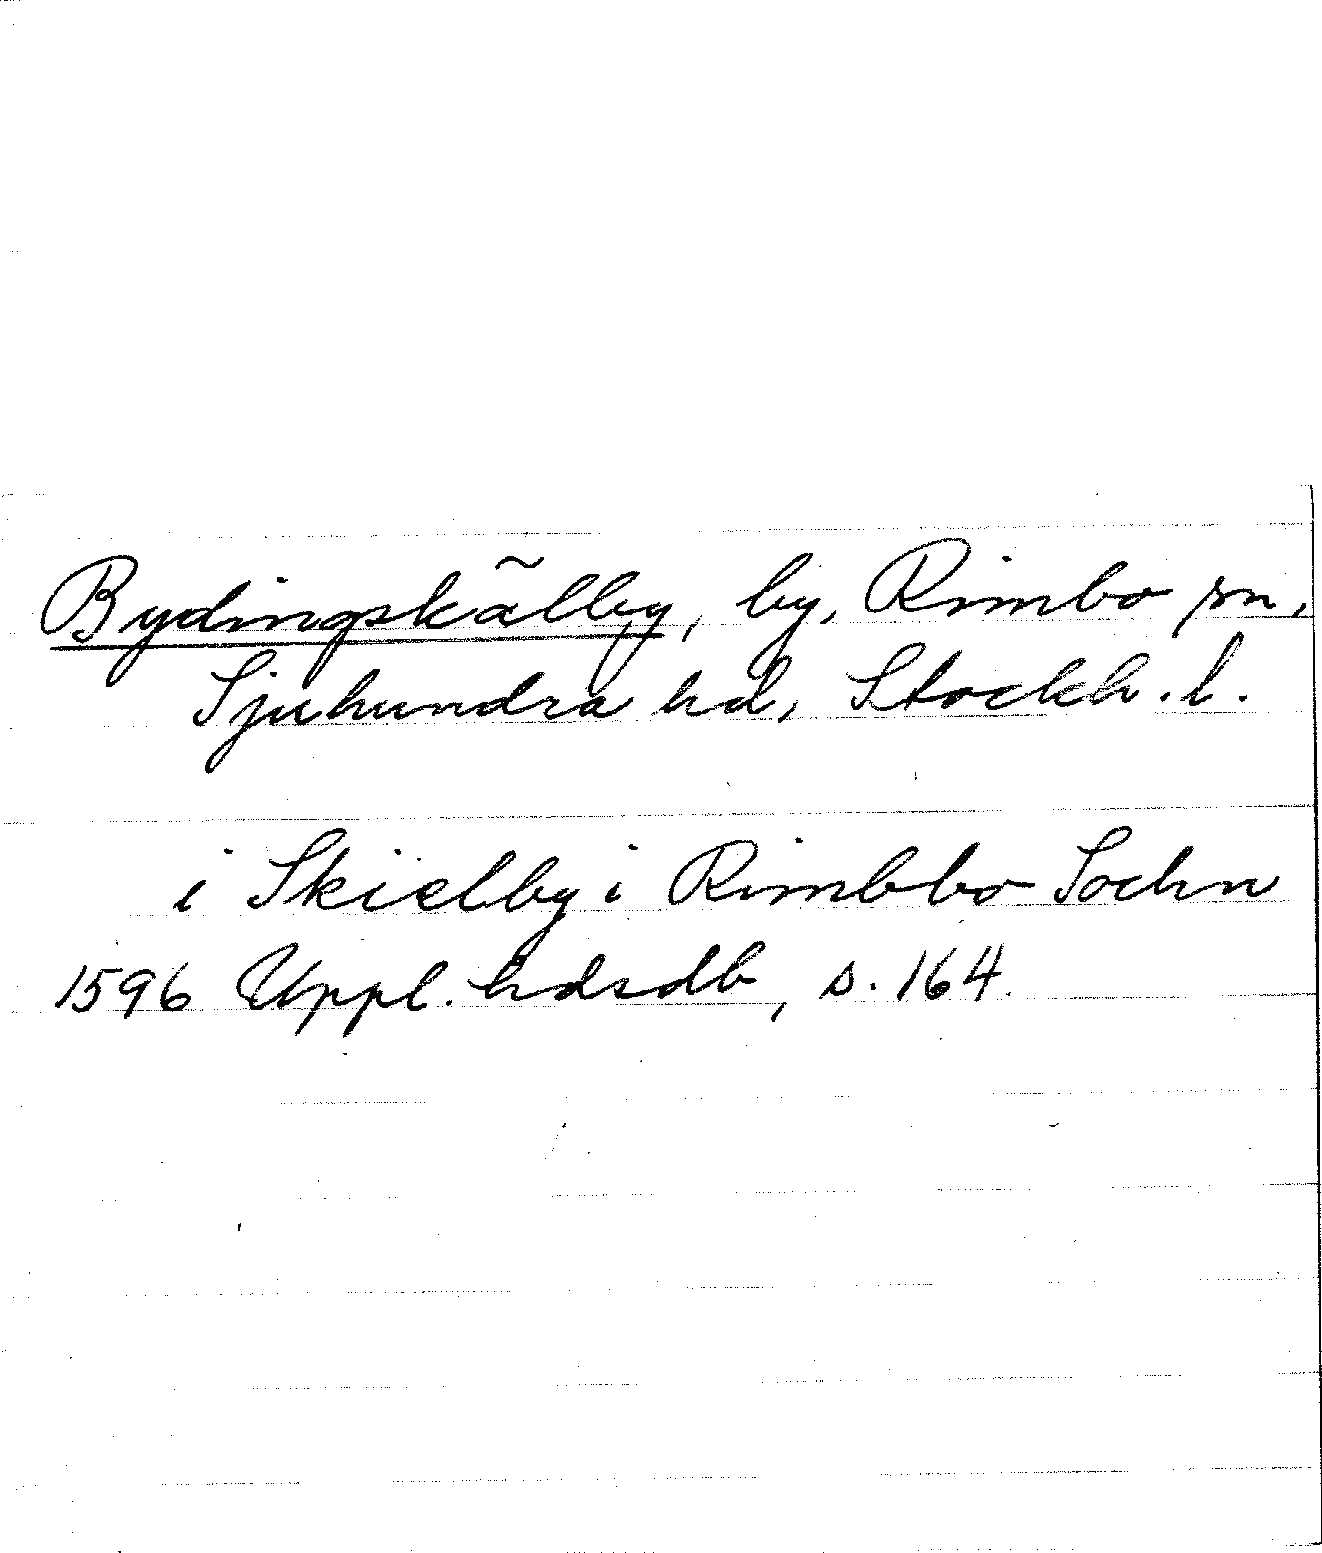 Bydingskälby, by, Rimbo sn,
Sjuhundra hd, Stockh. l.
i Skielby i Rimbbo Sochn
1596 Uppl. hdsdb, s. 164.